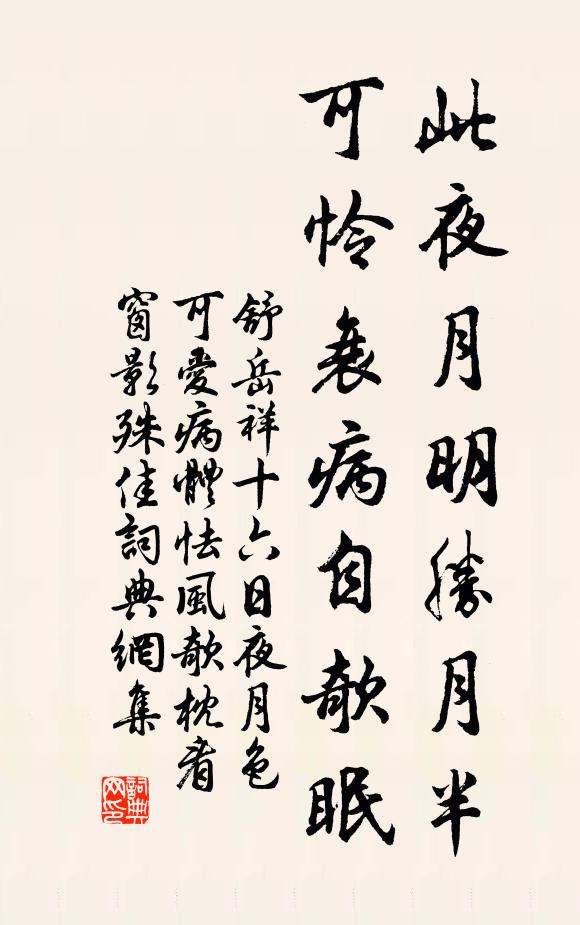 此夜月明勝月半
可怜衰病自欹眠
舒岳祥十六日夜月色
可愛病體怯風欹枕看
窗影殊佳詞典網集
詞典网印